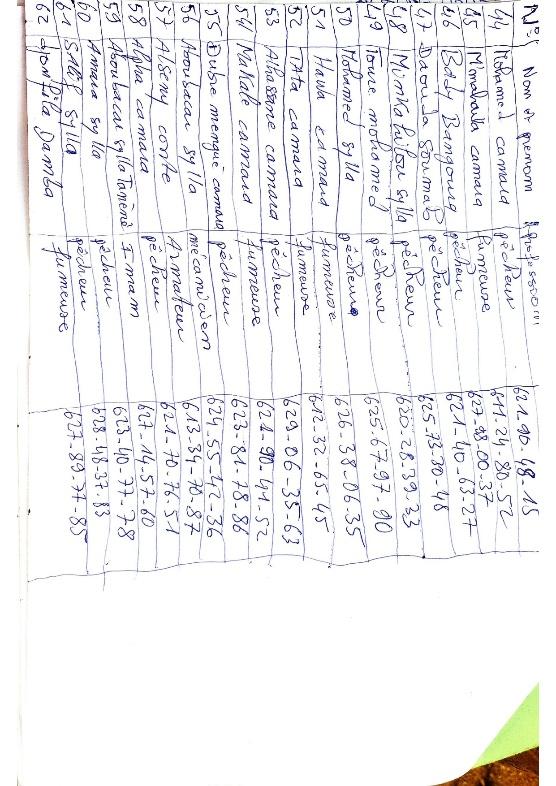 N° Nom et prenom profession
44 Mohamed camara pêcheur 621.90.48.15
45 Mmahawa camara fumeuse 611.24.80.52
46 Badg Bangoura pêcheur 627-98-00-37
47 Daouda Soumah pêcheur 621-40-63-27
48 Sylla pêcheur 625-73-80-48
49 Toure mohamed pêcheur 620-28-39.33
50 Mohamed sylla pêcheur 625-67-97-90
51 Hawa camara fumeuse 626-38-06-35
52 Tata camara fumeuse 612-32-65-45
53 Alhassane camara pêcheur 629-06-35-63
54 Makale camara fumeuse 621-90-41-52
55 camara pêcheur 623-81-78-86
56 Aboubacar sylla mécanicien 624-55-42-36
57 Alseny conte Armateur 613-34-70-87
58 Alpha camara pêcheur 621-70-76-51
59 Aboubacar sylla Tanené Imam 627-14.57-60
60 Amara sylla pêcheur 623-40-77-78
61 Salif sylla pêcheur 628-48-37.83
62 Damba fumeuse 627-89-77-85